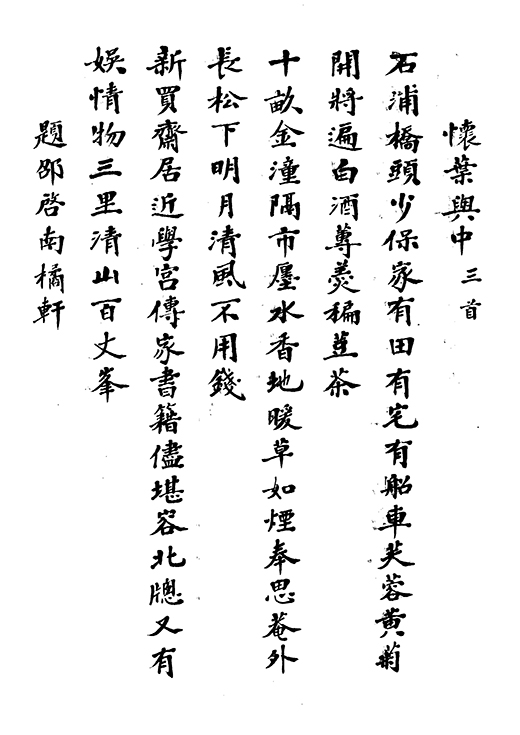 懷葉與中三首
石浦橋頭少保家有田有宅有船車芙蓉黃菊
開將遍白酒蓴羹稨荳茶
十畝金潼隔市廛水香地暖草如煙奉思菴外
長松下明月清風不用錢
新買齋居近學宮傳家書籍儘堪容北牕又有
娛情物三里清山百丈峯
題邵啓南橘軒